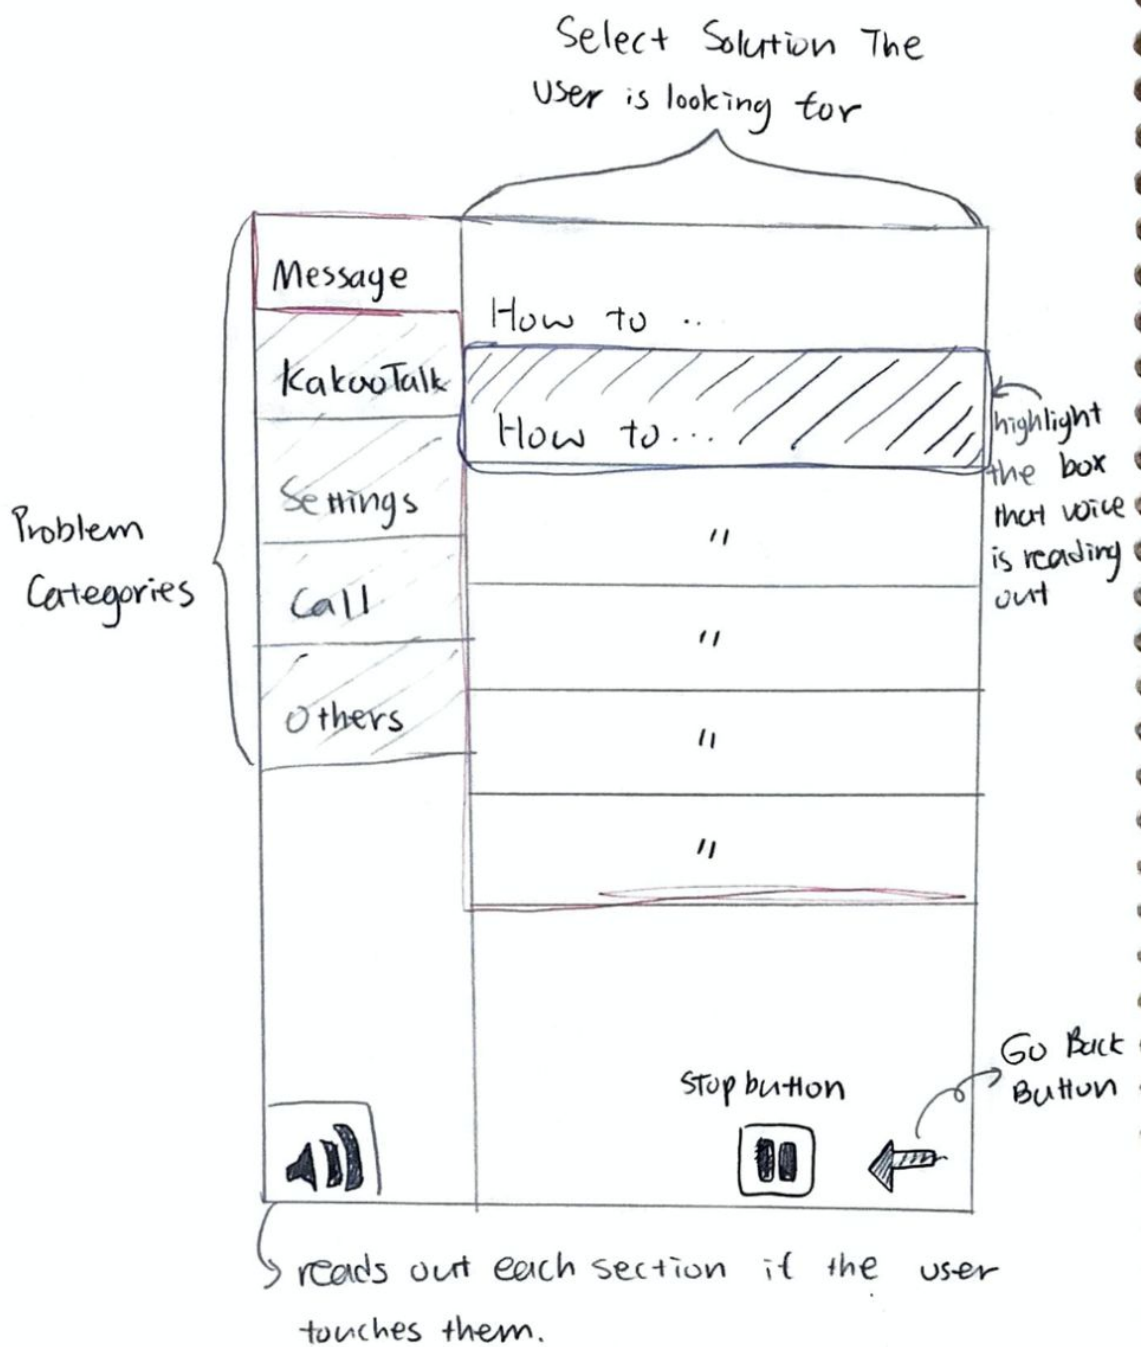 Select Solution The
user is looking for
Message
KakaoTalk
Settings
Call
Others
Problem
Categories
How to ..
How to...
"
"
"
"
highlight
the box
that voice
is reading
out
Stop button
Go Back
Button
reads out each section if the user
touches them.